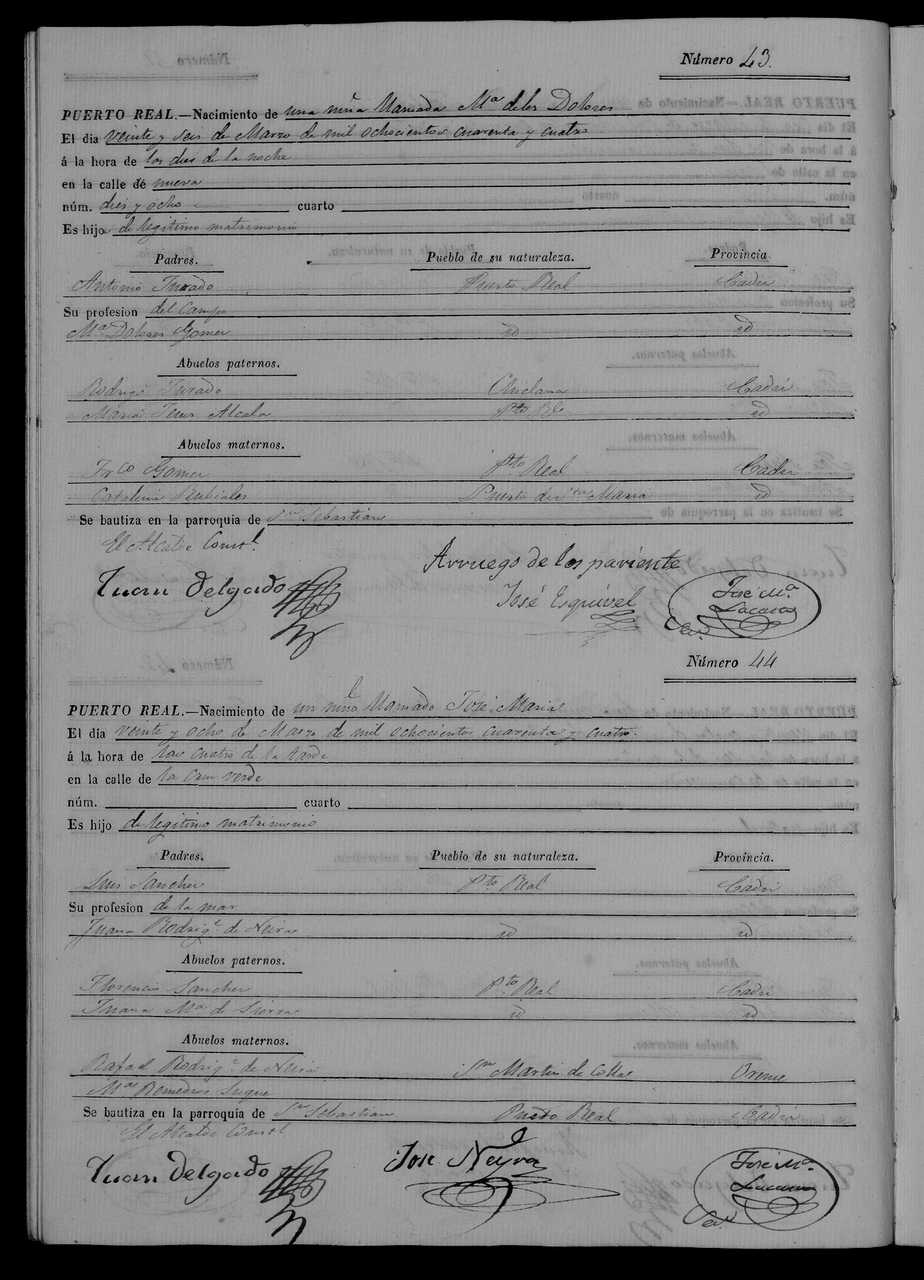 Número 43.
PUERTO REAL.—Nacimiento de una niña llamada Mª de los Dolores
El dia veinte y seis de Marzo de mil ochocientos cuarenta y cuatro
á la hora de las dies de la noche
en la calle de nueva
núm. dies y ocho cuarto
Es hijo de legitimo matrimonio
Padres. Pueblo de su naturaleza. Provincia
Antonio Jurado Puerto Real Cadiz
Su profesion del Campo
Mª Dolores Gomez id id
Abuelos paternos.
Rodrigo Jurado Chiclana Cadiz
Maria Alcala Pto Rl id
Abuelos maternos.
Frco Gomez Pto Real Cadiz
Catalina Rubiales Puerto de Sta Maria id
Se bautiza en la parroquia de Sn Sebastian
El Alcalde Const.l
Arruego de los pariente
Juan Delgado José Esquivel José Mª
Número 44
PUERTO REAL.—Nacimiento de un niño llamado José Maria
El dia veinte y ocho de Marzo de mil ochocientos cuarenta y cuatro.
á la hora de las cuatro de la tarde
en la calle de la Cruz verde
núm. cuarto
Es hijo de legitimo matrimonio
Padres. Pueblo de su naturaleza. Provincia.
Luis Sanchez Pto Real Cadiz
Su profesion de la mar
Juana Rodrig.z de Neira id id
Abuelos paternos.
Florencio Sanchez Pto Real Cadiz
Juana Mª de Sierra id id
Abuelos maternos.
Rafael Rodrig.z de Neira Sn Martin de Orense
Mª Remedios Luque
Se bautiza en la parroquia de Sn Sebastian Puerto Real Cadiz
El Alcalde Const.l
Juan Delgado José Neyra José Mª